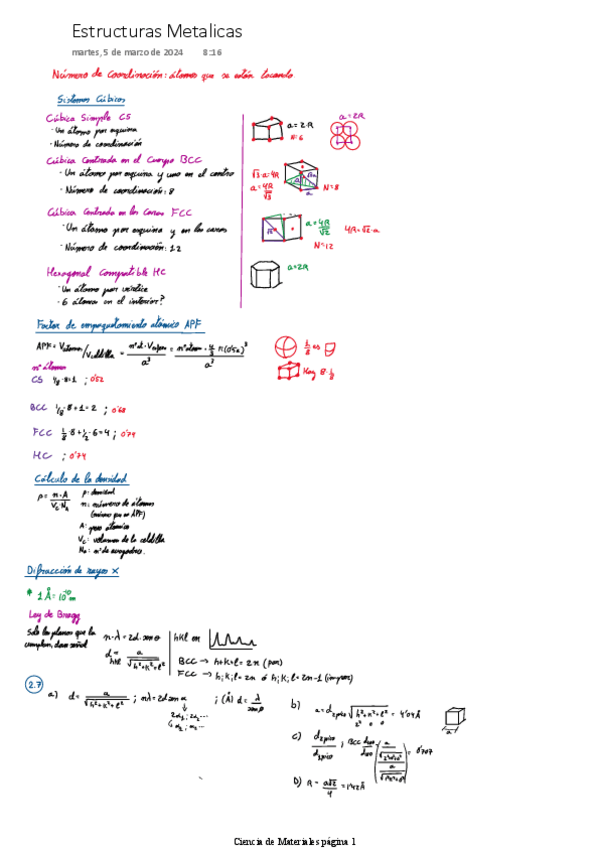 Estructuras Metalicas
martes, 5 de marzo de 2024 8:16
Número de Coordinación: átomos que se están tocando.
Sistemas Cúbicos
Cúbica Simple CS
· Un átomo por esquina
· Número de coordinación
a = 2·R
N=6
a = 2R
Cúbica Centrada en el Cuerpo BCC
· Un átomo por esquina y uno en el centro
· Número de coordinación: 8
√3·a=4R
a = 4R/√3
N=8
Cúbica Centrada en las Caras FCC
· Un átomo por esquina y en las caras
· Número de coordinación: 12
a = 4R/√2
4R=√2·a
N=12
Hexagonal Compatible HC
· Un átomo por vértice
· 6 átomos en el interior?
a=2R
Factor de empaquetamiento atómico APF
APF = Vátomos/Vceldilla =
a³
a³
1/8 es
Hay 8·1/8
nº átomos
CS 1/8·8=1 ; 0'52
BCC 1/8·8+1=2 ; 0'68
FCC 1/8·8+1/2·6=4 ; 0'74
HC ; 0'74
Cálculo de la densidad
ρ = n·A/Vc·NA
ρ: densidad
n: número de átomos
(mismos que en APF)
A: peso atómico
Vc: volumen de la celdilla
NA: nº de avogadro.
Difracción de rayos X
* 1 Å = 10⁻¹⁰ m
Ley de Bragg
Solo los planos que la
cumplan, dan señal
n·λ = 2d·senθ
d hkl = a/√h²+k²+l²
hkl en
BCC → h+k+l = 2n (par)
FCC → h;k;l = 2n ó h;k;l = 2n-1 (impar)
2.7
a) d = a/√h²+k²+l² ; nλ = 2d sen
; (Å) d =
b) a = d √h²+k²+l² = 4'04 Å
2² 0 0
a
c)
= 0'707
D) R = a√2/4 = 1'42 Å
Ciencia de Materiales página 1